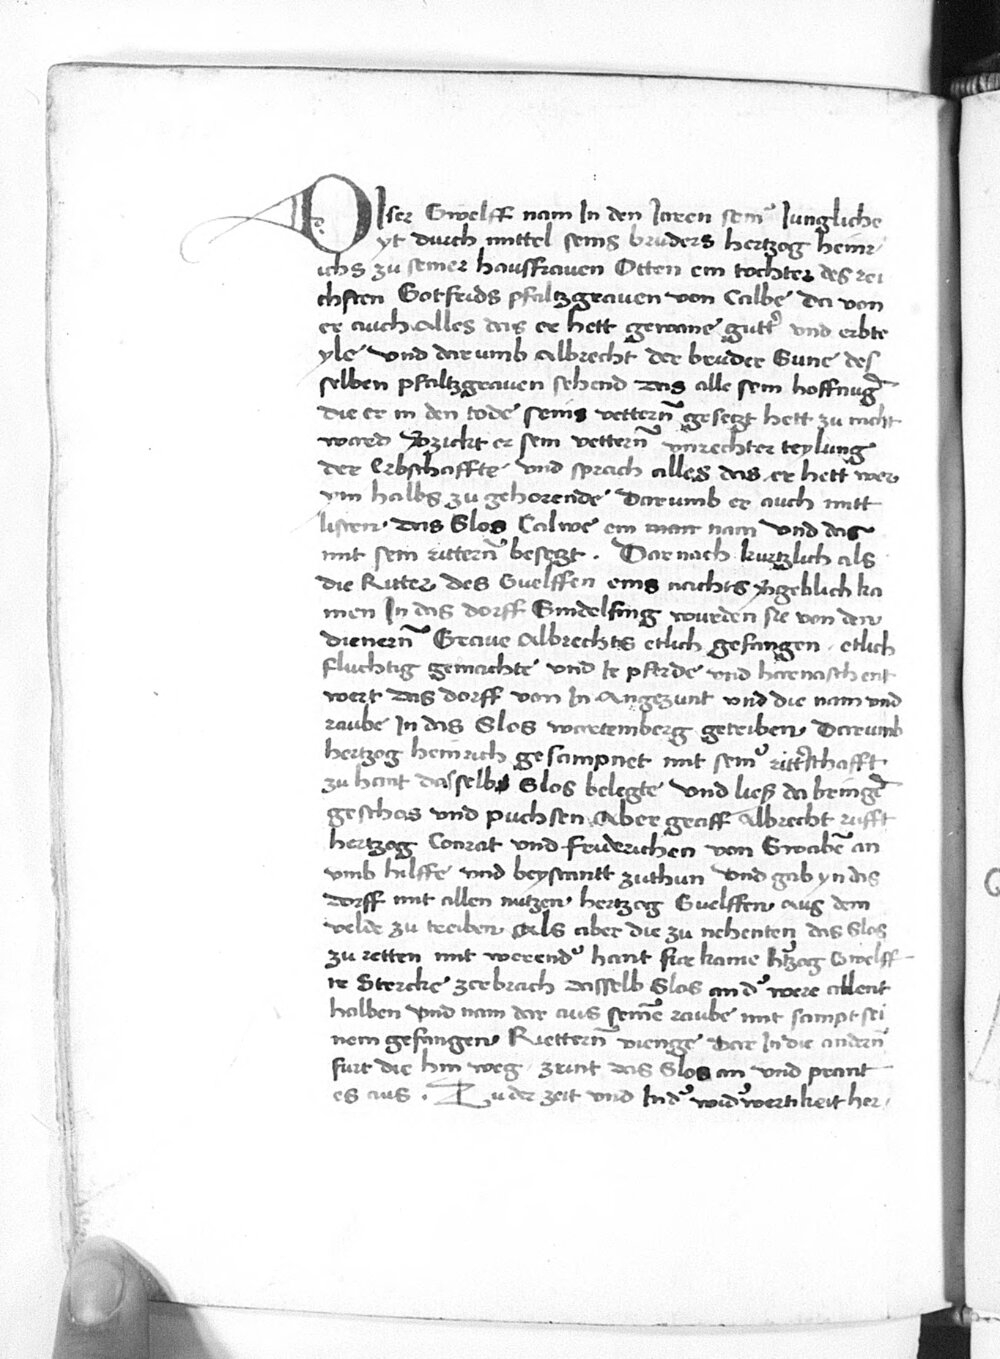 Diser Gwelff nam In den Jaren seiner Jungliche
yt durch mittel seins bruders hertzog heinr
ichs zu seiner hausfrauen Otten ein tochter des rei
chsten Gotfrids pfaltzgrauen von Calbe Da von
er auch Alles das er hett gewane gutter und erbte
yle Und darumb Albrecht der bruder Sune des
selben pfaltzgrauen sehend Das alle sein hoffnug
die er in den tode seins vettern gesegt hett zu nicht
ward Bzickt er sein vettern unrechter teylung
der Erbschaffte Und sprach alles das er hett wer
ym halbs zu gehorende Darumb er auch mitt
listen Das Slos Calwe ein nam Und das
mit sein rittern besegt . Darnach kurtzlich als
die Ritter des Guelffen eins nachts yngeblich ka
men In das dorff Sindelfing wurden sie von den
dienern Graue Albrechts etlich gefangen etlich
fluchtig gemachte Und Ir pferde und harnasch ent
wert Das dorff von In Angezunt Und die nam und
raube In das Slos wartemberg getriben Darumb
hertzog heinrich gesampnet mit seiner ritterschafft
zu hant dasselbs Slos belegte Und ließ da bringen
geschos und puchsen Aber graff Albrecht rufft
hertzog Conrat und friderichen von Swaben an
umb hilffe und beystantt zuthun Und gab yn das
Dorff mit allen nutzen hertzog Guelffen aus dem
velde zu treiben Als aber die zu nehenten das Slos
zu retten mit werender hant fur kame hertzog Gwelff
ir Stercke zerbrach dasselb Slos an der were allent
halben Und nam dar aus seine raube mit sampt sei
nem gefangen Rittern vienge Dar In die andern
furt die hin weg zunt das Slos an und prant
es aus . Zu der zeit und In der widerwertikeit her